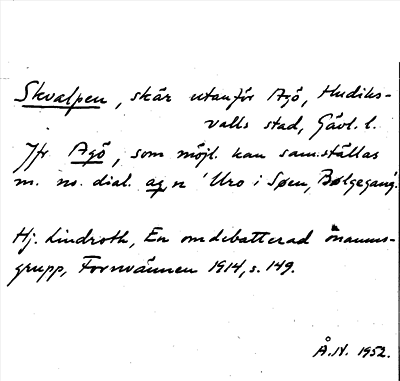 Skvalpen, skär utanför Agö, Hudiks-
valls stad, Gävl. l.
Jfr Agö, som möjl. kan samställas
m. no. dial. ag n 'Uro i Søen, Bølgegang'.
Hj. Lindroth, En omdebatterad önamns-
grupp, Fornvännen 1914, s. 149.
Å.N. 1952.